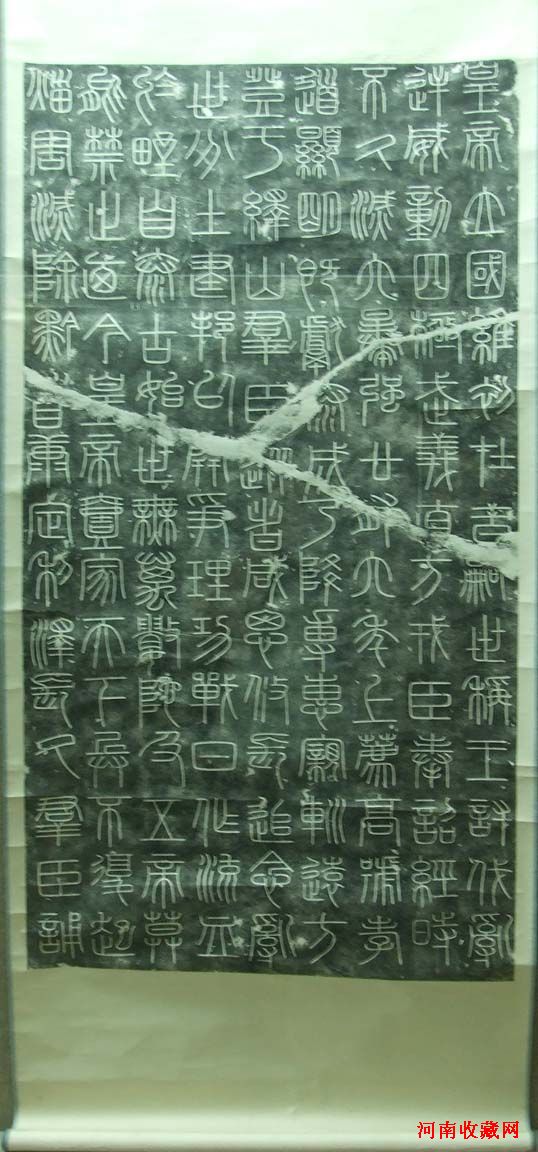 皇帝立國維初在昔嗣世稱王討伐亂
逆威動四極武義直方戎臣奉詔經時
不久滅六暴強廿有六年上薦高號孝
道顯明既獻泰成乃降專惠親䡅遠方
登于繹山羣臣從者咸思攸長追念亂
世分土建邦以開爭理功戰日作流血
於野自泰古始世無萬數陀及五帝莫
能禁止廼今皇帝壹家天下兵不復起
災害滅除黔首康定利澤長久羣臣誦
河南收藏网